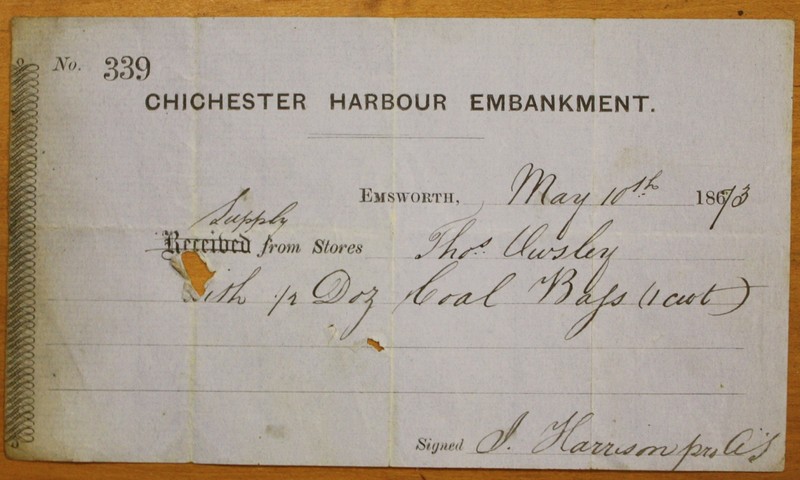 No. 339
CHICHESTER HARBOUR EMBANKMENT.
EMSWORTH, May 10th 1873
Supply
Received from Stores Thos. Owsley
With 1/2 Doz Coal Bags (1 cwt)
Signed J. Harrison pro